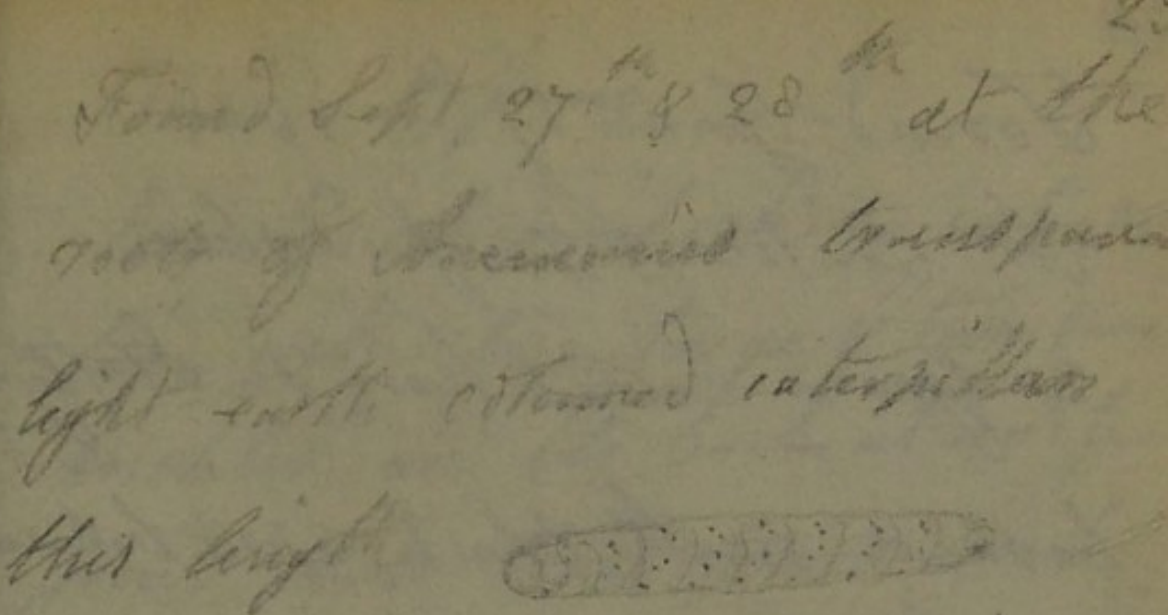 Found Sept 27th & 28th at the
roots of Anemonies transpara
light earth coloured caterpillars
this length